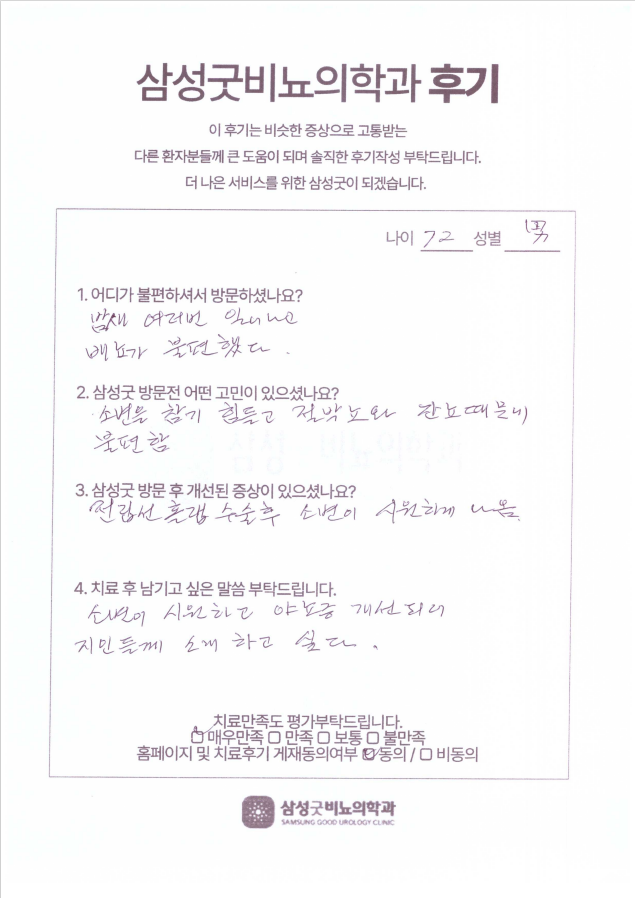 삼성굿비뇨의학과 후기
이 후기는 비슷한 증상으로 고통받는
다른 환자분들께 큰 도움이 되며 솔직한 후기작성 부탁드립니다.
더 나은 서비스를 위한 삼성굿이 되겠습니다.
나이 72 성별 男
1. 어디가 불편하셔서 방문하셨나요?
밤새 여러번 일어나고
배뇨가 불편했다.
2. 삼성굿 방문전 어떤 고민이 있으셨나요?
소변을 참기 힘들고 절박뇨와 잔뇨때문에
불편함
3. 삼성굿 방문 후 개선된 증상이 있으셨나요?
전립선 홀렙 수술후 소변이 시원하게 나옴.
4. 치료 후 남기고 싶은 말씀 부탁드립니다.
소변이 시원하고 야뇨증 개선되니
지인들께 소개 하고 싶다.
치료만족도 평가부탁드립니다.
매우만족 만족 보통 불만족
홈페이지 및 치료후기 게재동의여부 동의 / 비동의
삼성굿비뇨의학과
SAMSUNG GOOD UROLOGY CLINIC